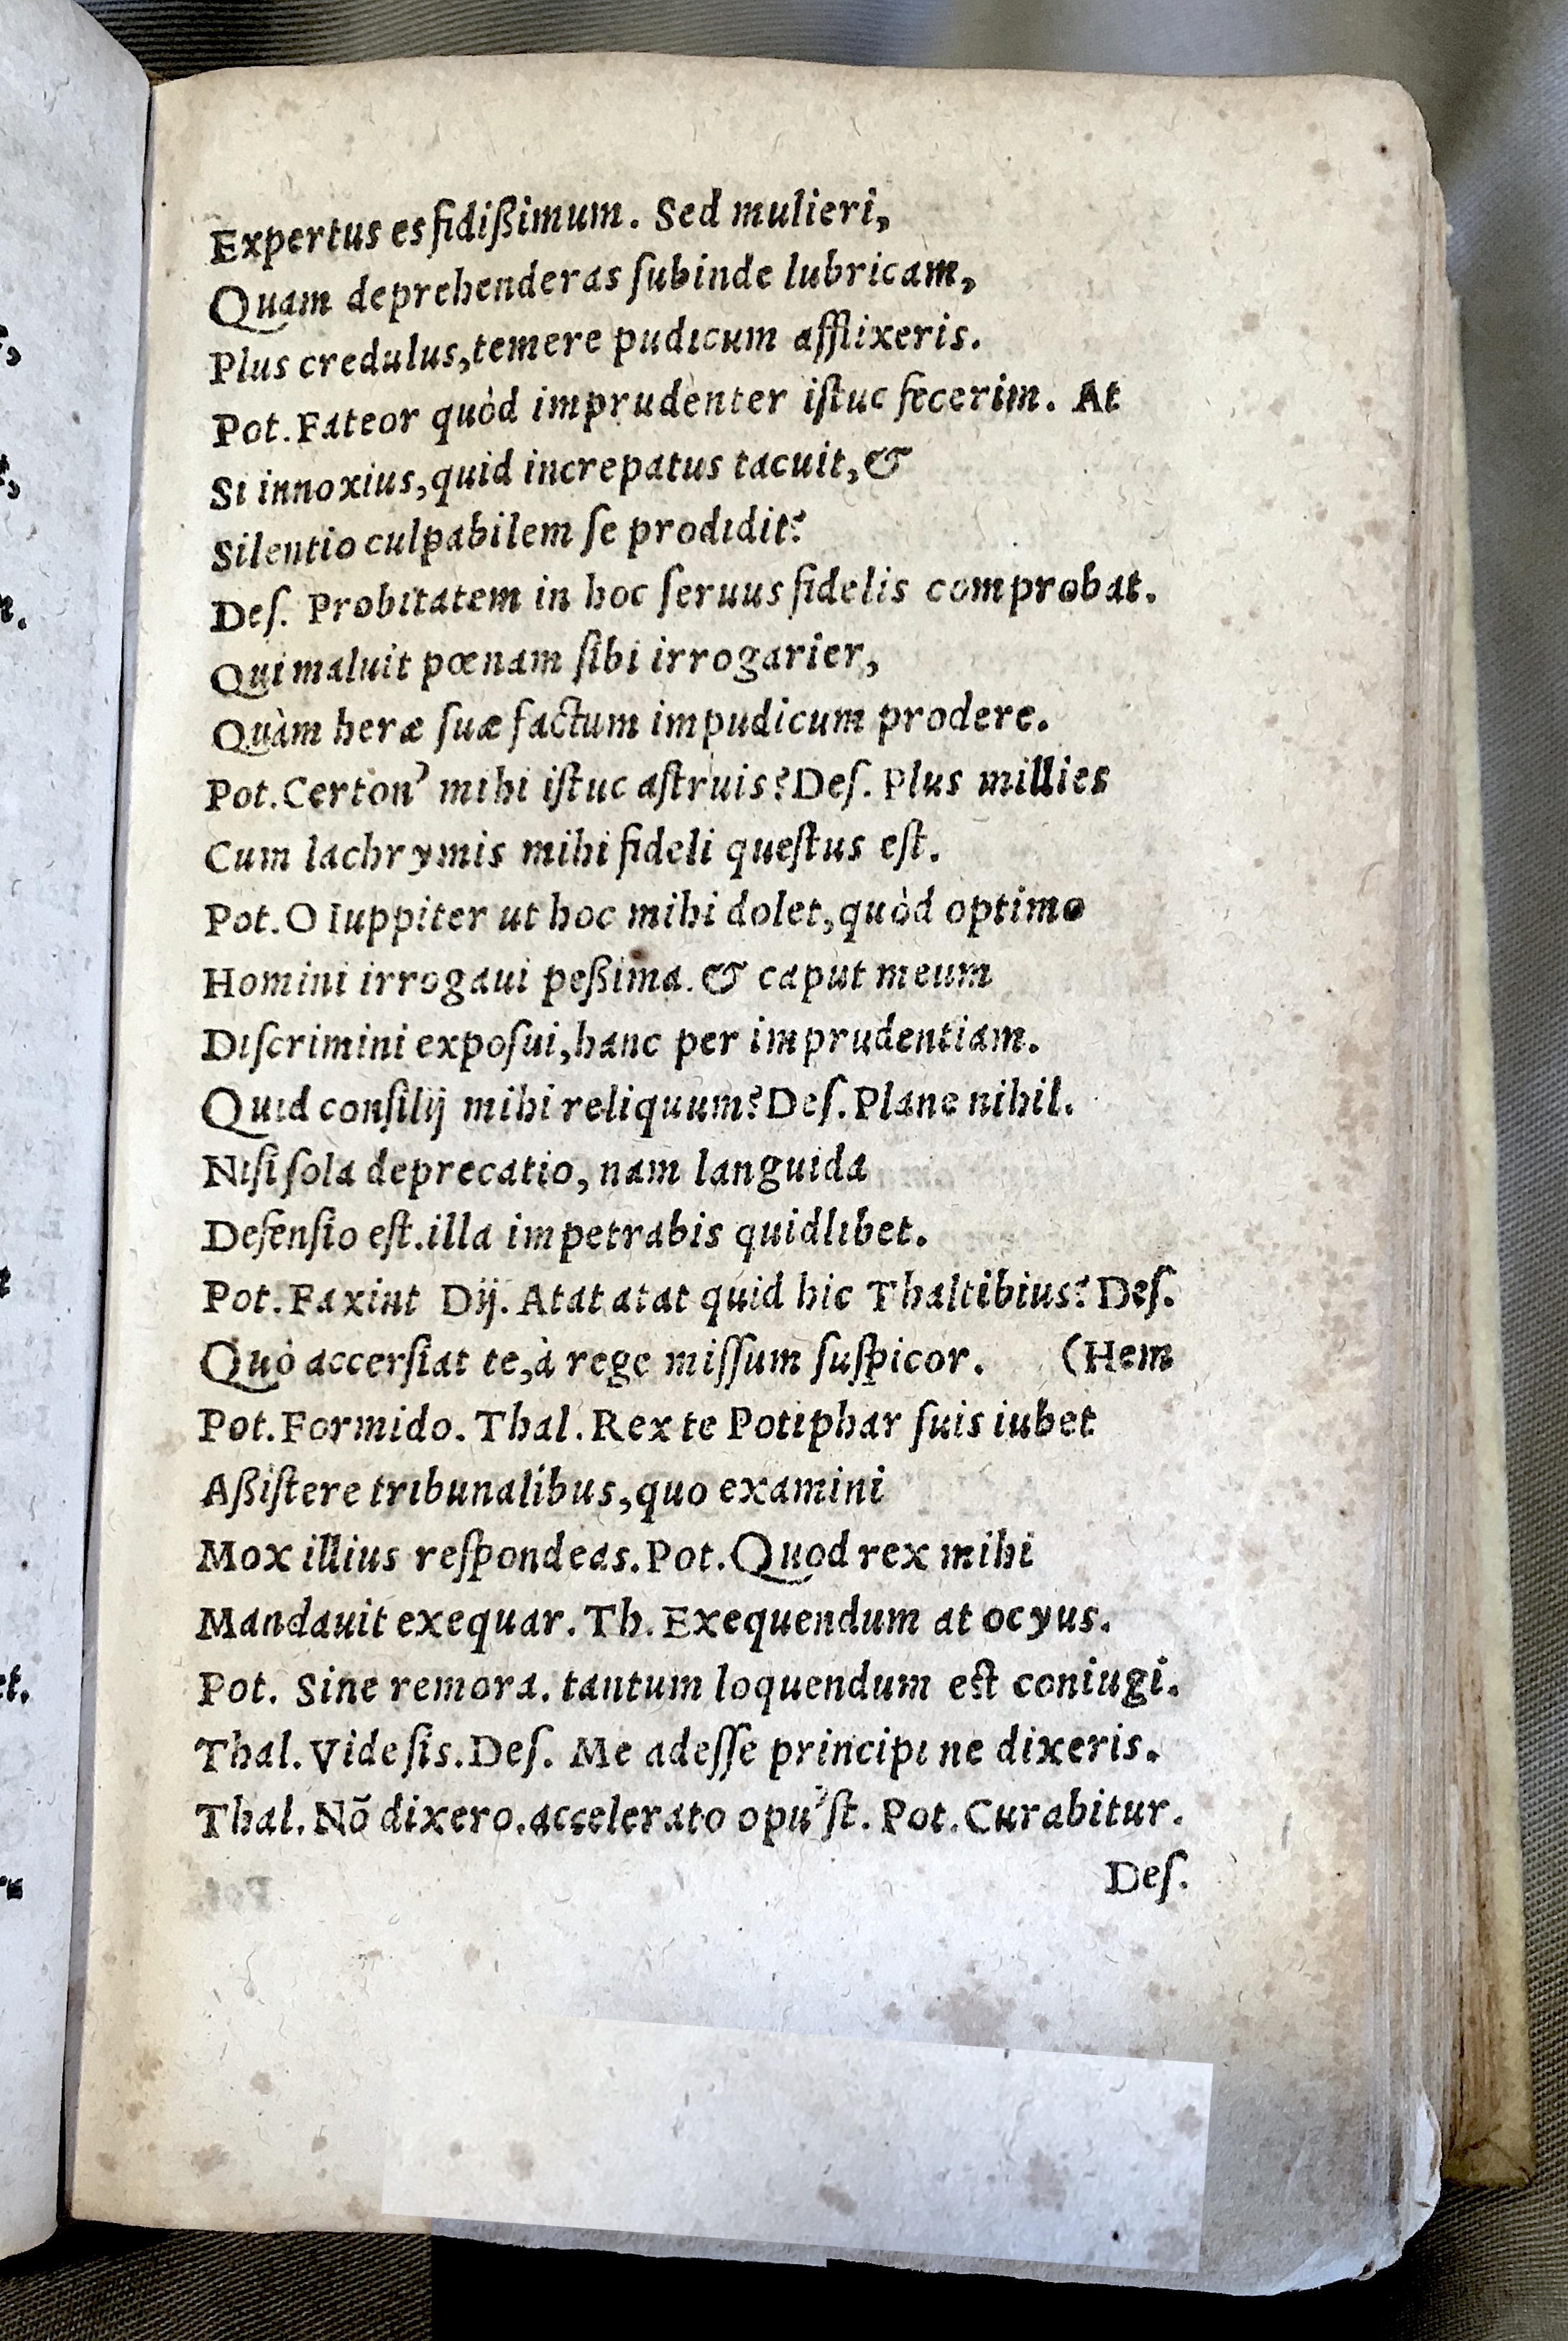 Expertus es fidißimum. Sed mulieri,
Quam deprehenderas ſubinde lubricam,
Plus credulus, temere pudicum afflixeris.
Pot. Fateor quòd imprudenter iſtuc fecerim. At
Si innoxius, quid increpatus tacuit, &
Silentio culpabilem ſe prodidit?
Deſ. Probitatem in hoc ſeruus fidelis comprobat.
Qui maluit pœnam ſibi irrogarier,
Quàm heræ ſuæ factum impudicum prodere.
Pot. Certon' mihi iſtuc aſtruis? Deſ. Plus millies
Cum lachrymis mihi fideli queſtus eſt.
Pot. O Iuppiter ut hoc mihi dolet, quòd optimo
Homini irrogaui peßima. & caput meum
Diſcrimini expoſui, hanc per imprudentiam.
Quid conſilij mihi reliquum? Deſ. Plane nihil.
Niſi ſola deprecatio, nam languida
Defenſio eſt. illa impetrabis quidlibet.
Pot. Faxint Dij. Atat atat quid hic Thaltibius? Deſ.
Quò accerſiat te, à rege miſſum ſuſpicor. (Hem
Pot. Formido. Thal. Rex te Potiphar ſuis iubet
Aßiſtere tribunalibus, quo examini
Mox illius reſpondeas. Pot. Quod rex mihi
Mandauit exequar. Th. Exequendum at ocyus.
Pot. Sine remora. tantum loquendum eſt coniugi.
Thal. Vide ſis. Deſ. Me adeſſe principi ne dixeris.
Thal. Nõ dixero. accelerato opu'ſt. Pot. Curabitur.
Deſ.